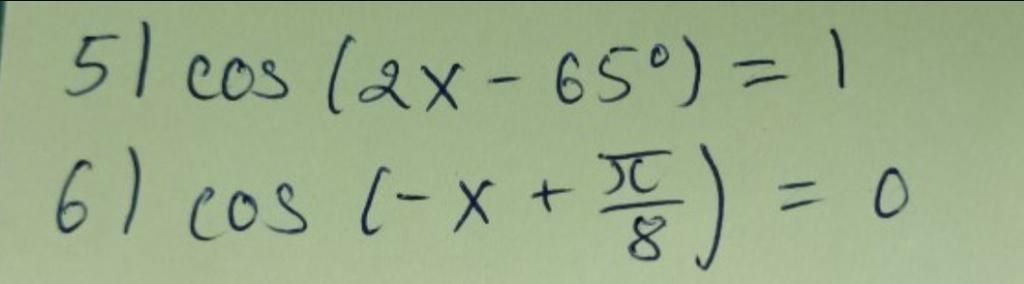 5) cos (2x - 65°) = 1
6) cos (-x + π/8) = 0